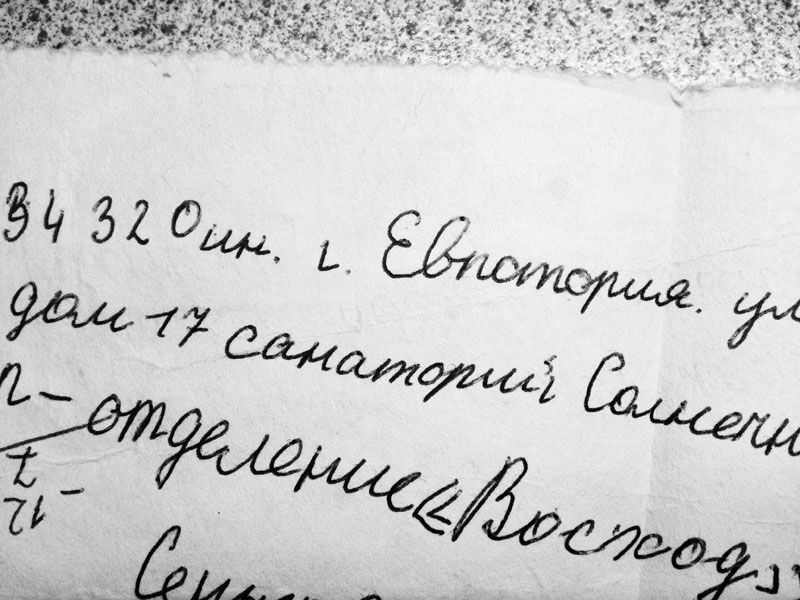 34320 ин. г. Евпатория. ул
дом 17 санаторий Солнечн
отделение «Восход»